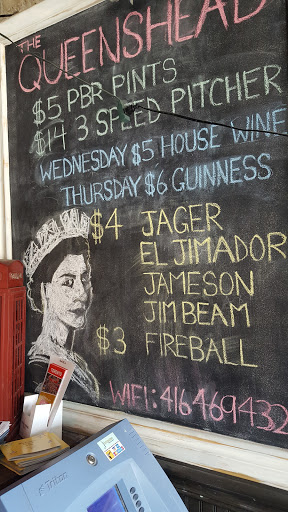 THE
QUEENSHEAD
$5 PBR PINTS
$14 3 SPEED PITCHER
WEDNESDAY $5 HOUSE WINE
THURSDAY $6 GUINNESS
$4 JAGER
EL JIMADOR
JAMESON
JIM BEAM
$3 FIREBALL
WIFI: 416469432
Triton